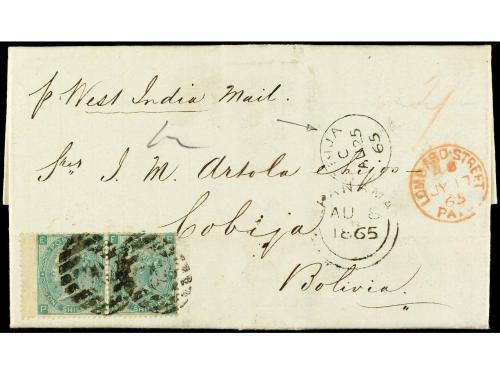 p West India Mail.
2/
Sres J. M. Artola Hijos
Cobija
Bolivia.
IJA
C
AU 25
65
PANAMA
AU 8
1865
LOMBARD-STREET
JY 17
65
PAID
E
P
SHILL